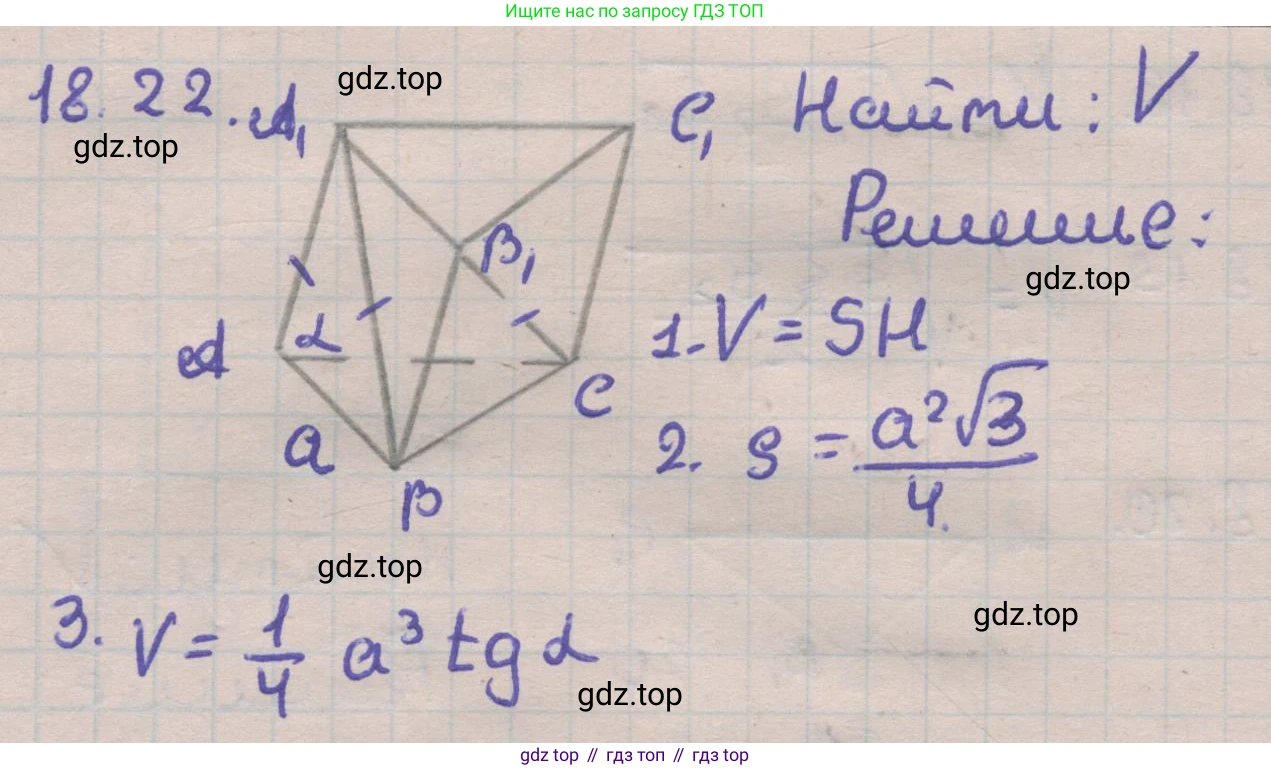 Ищите нас по запросу ГДЗ ТОП
18.22.
gdz.top
gdz.top
A₁
C₁
Найти: V
Решение:
gdz.top
B₁
α
A
C
a
B
1. V = SH
2. S = a²√3 / 4.
gdz.top
gdz.top
3. V = 1/4 a³ tg α
gdz.top
gdz top // гдз топ // gdz top